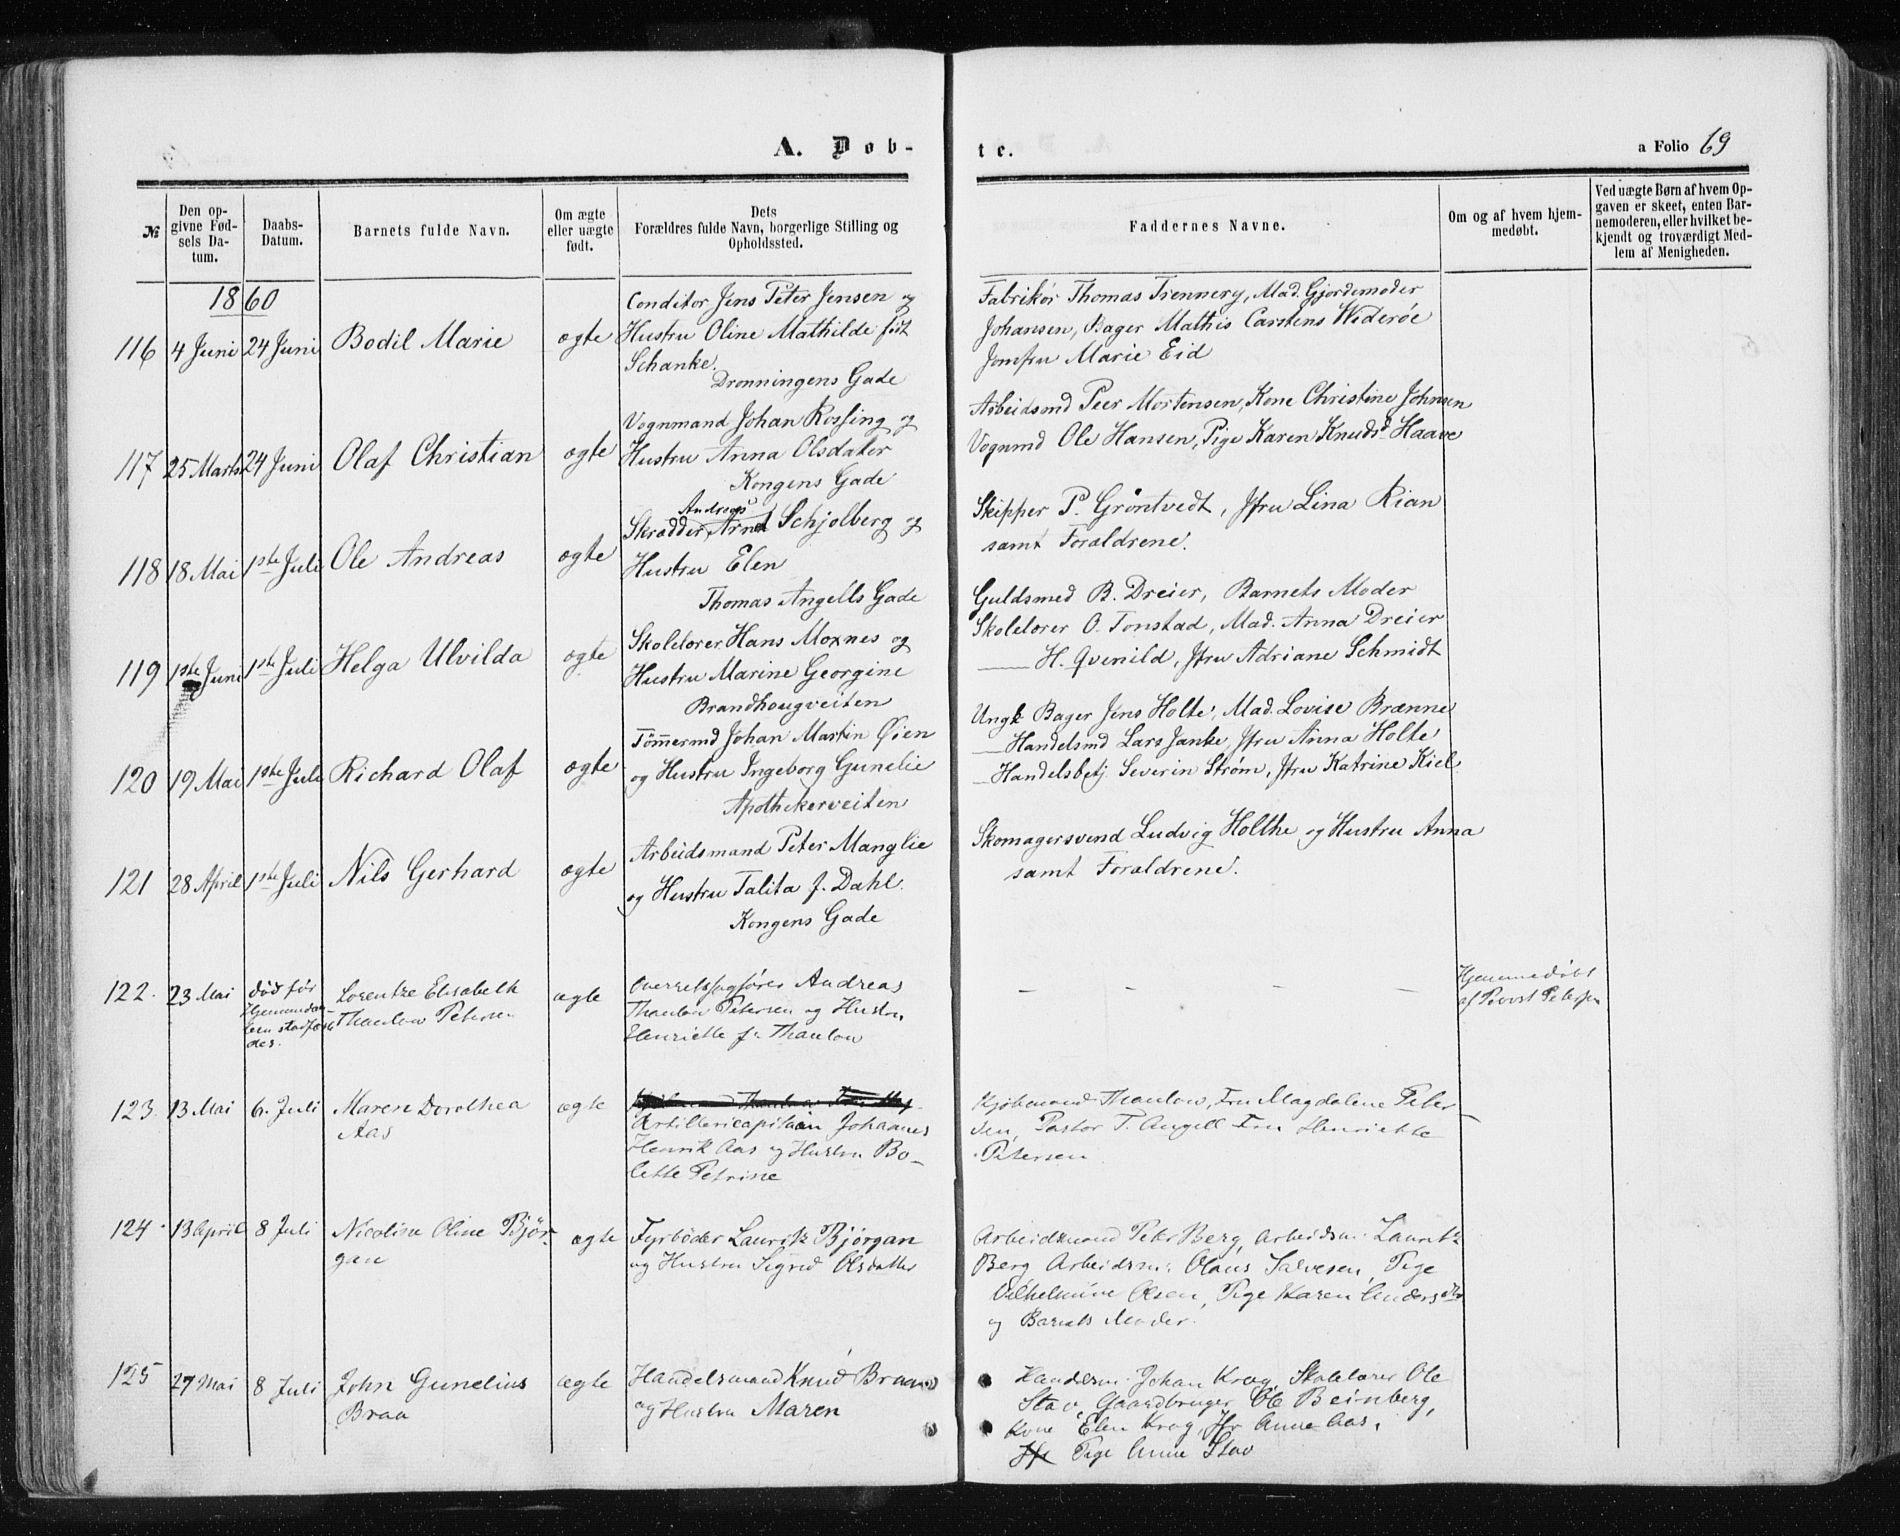 A. Døb-
te.
a Folio 69
№
Den op-
givne Fød-
sels Da-
tum.
Daabs-
Datum.
Barnets fulde Navn.
Om ægte
eller uægte
født.
Dets
Forældres fulde Navn, borgerlige Stilling og
Opholdssted.
Faddernes Navne.
Om og af hvem hjem-
medøbt.
Ved uægte Børn af hvem Op-
gaven er skeet, enten Bar-
nemoderen, eller hvilket be-
kjendt og troværdigt Med-
lem af Menigheden.
1860
116 4 Juni 24 Juni Bodil Marie ægte
Conditor Jens Peter Jensen og
Hustru Oline Mathilde født
Schanke.
Dronningens Gade
Fabrikør Thomas Trennery, Mad. Gjordemoder
Johansen, Bager Mathis Carstens Widerøe
Jomfru Marie Eid
117 25 Marts 24 Juni Olaf Christian ægte
Vognmand Johan Rossing og
Hustru Anna Olsdater
Kongens Gade
Arbeidsmd Peer Mortensen, Kone Christine Johnsen
Vognmd Ole Hansen, Pige Karen Knudsd Haave
118 18 Mai 1ste Juli Ole Andreas ægte
Andreas
Skrædder Arnt Schjølberg og
Hustru Elen
Thomas Angells Gade
Skipper P. Grøntvedt, Jfru Lina Rian
samt Forældrene.
119 1ste Juni 1ste Juli Helga Ulvilda ægte
Skolelærer Hans Moxnes og
Hustru Marine Georgine
Brandhougveiten
Guldsmed B. Dreier, Barnets Moder
Skolelærer O. Tonstad, Mad. Anna Dreier
—— H. Qvenild, Jfru Adriane Schmidt
120 19 Mai 1ste Juli Richard Olaf ægte
Tømmermd Johan Martin Øien
og Hustru Ingeborg Gunelie
Apothekerveiten
Ungk Bager Jens Holte, Mad. Lovise Brænne
— Handelsmd Lars Janke, Jfru Anna Holte
— Handelsbetj. Severin Strøm, Jfru Katrine Kiel
121 28 April 1ste Juli Nils Gerhard ægte
Arbeidsmand Peter Manglie
og Hustru Talita f. Dahl.
Kongens Gade
Skomagersvend Ludvig Holthe og Hustru Anna
samt Forældrene.
122. 23 Mai død før
Hjemmedaa-
ben stadfæste
des.
Lorentze Elisabeth
Thaulow Petersen
ægte
Overretssagfører Andreas
Thaulow Petersen og Hustru
Henriette f. Thaulow
– – – –
Hjemmedøbt
af Provst Petersen
123. 13 Mai 6. Juli Maren Dorothea
Aas
ægte
Kjøbmand Thaulow Fru Mag
Artillericapitain Johannes
Henrik Aas og Hustru Bo-
lette Petrine
Kjøbmand Thaulow, Fru Magdalene Peter-
sen, Pastor T. Angell Fru Henriette
Petersen
–
124. 13 April 8 Juli Nicoline Oline Bjør-
gan
ægte
Fyrbøder Lauritz Bjørgan
og Hustru Sigrid Olsdatter
Arbeidsmand Peter Berg, Arbeidsm. Lauritz
Berg Arbeidsm: Olaus Salvesen, Pige
Vilhelmine Olsen, Pige Karen Andersdtr
og Barnets Moder.
125 27 Mai 8 Juli John Gunelius
Braa
ægte
Handelsmand Knud Braa
og Hustru Maren
Handelsm. Johan Krog, Skolelærer Ole
Stav, Gaardbruger Ole Beinberg,
Kone Elen Krog, Jfr Anne Aas,
Jfr Pige Anne Stav